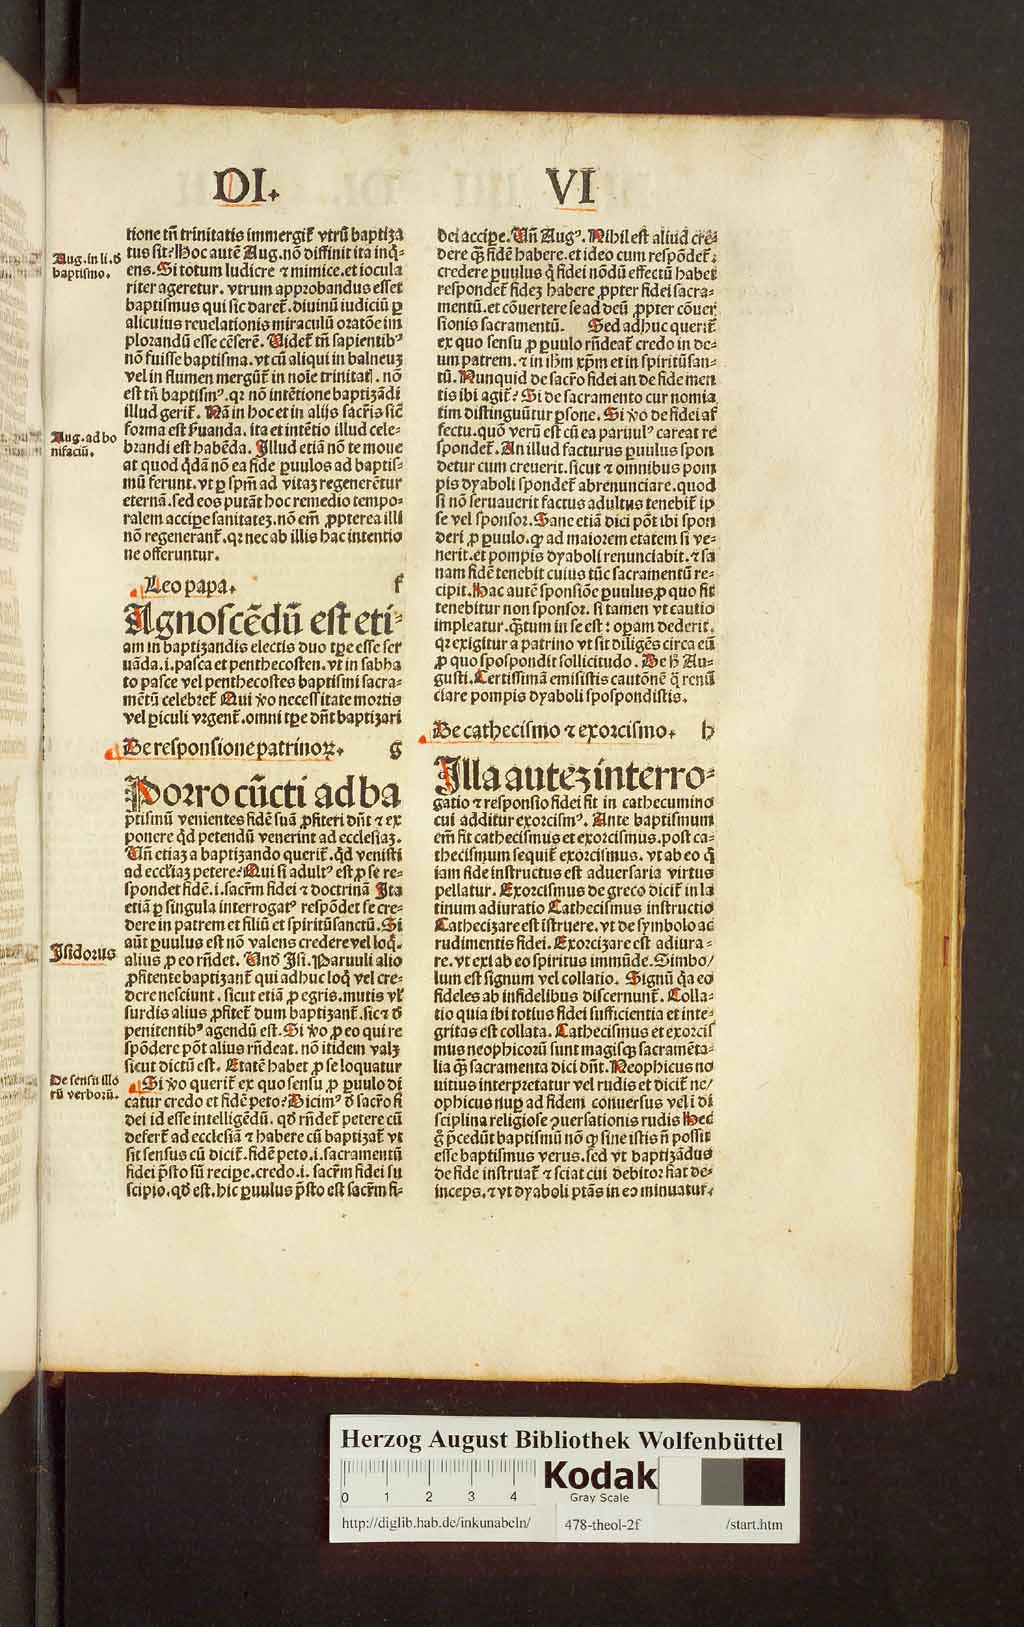 DI. VI
tione tñ trinitatis immergit̃ vtrũ baptiza
tus sit? Hoc autẽ Aug. nõ diffinit ita inq̃-
ens. Si totum ludicre ⁊ mimice. et iocula
riter ageretur. vtrum approbandus esset
baptismus qui sic daret̃. diuinũ iudiciũ ꝑ
alicuius reuelationis miraculũ oratõe im
plorandũ esse cẽserẽ. Videt̃ tñ sapientibꝰ
nõ fuisse baptisma. vt cũ aliqui in balneuꝫ
vel in flumen mergũt̃ in noĩe trinitatꝭ. nõ
est tñ baptismꝰ. qꝛ nõ intẽtione baptizãdi
illud gerit̃. Nã in hoc et in alijs sacr̃is sic̃
forma est ẜuanda. ita et intẽtio illud cele-
brandi est habẽda. Illud etiã nõ te moue
at quod q̃dã nõ ea fide ꝑuulos ad baptis-
mũ ferunt. vt ꝑ sp̃m ad vitaꝫ regenerẽtur
eternã. sed eos putãt hoc remedio tempo-
ralem accipe sanitateꝫ. nõ em̃ ꝓpterea illi
nõ regenerant̃. qꝛ nec ab illis hac intentio
ne offeruntur.
Leo papa. f
Agnoscẽdũ est eti-
am in baptizandis electis duo tꝑe esse ser
uãda. i. pasca et penthecosten. vt in sabba
to pasce vel penthecostes baptismi sacra-
mẽtũ celebret̃ Qui ꝟo necessitate mortis
vel ꝑiculi vrgent̃. omni tꝑe dñt baptizari
De responsione patrinoꝝ. g
Porro cũcti ad ba
ptismũ venientes fidẽ suã ꝓfiteri dñt ⁊ ex
ponere qd̃ petendũ venerint ad ecclesiaꝫ.
Vñ etiaꝫ a baptizando querit̃. qd̃ venisti
ad eccl̃iaꝫ petere? Qui si adultꝰ est ꝓ se re-
spondet fidẽ. i. sacr̃m fidei ⁊ doctrinã Ita
etiã ꝑ singula interrogatꝰ respõdet se cre-
dere in patrem et filiũ et spiritũsanctũ. Si
aũt ꝑuulus est nõ valens credere vel loq̃.
alius ꝓ eo rñdet. Vnd̃ Isi. Paruuli alio
ꝓfitente baptizant̃ qui adhuc loq̃ vel cre-
dere nesciunt. sicut etiã ꝓ egris. mutis vl̃
surdis alius ꝓfitet̃ dum baptizant̃. sic ⁊ d̃
penitentibꝰ agendũ est. Si ꝟo ꝓ eo qui re
spõdere põt alius rñdeat. nõ itidem valꝫ
sicut dictũ est. Etatẽ habet ꝓ se loquatur
Si ꝟo querit̃ ex quo sensu ꝓ ꝑuulo di
catur credo et fidẽ peto? Dicimꝰ d̃ sacr̃o fi
dei id esse intelligẽdũ. qd̃ rñdet̃ petere cũ
defert̃ ad ecclesiã ⁊ habere cũ baptizat̃ vt
sit sensus cũ dicit̃. fidẽ peto. i. sacramentũ
fidei p̃sto sũ recipe. credo. i. sacr̃m fidei su
scipio. qd̃ est. hic ꝑuulus p̃sto est sacr̃m fi-
Aug. in li. d̃
baptismo.
Aug. ad bo
nifaciũ.
Isidorus
De sensu illo
rũ verborũ.
dei accipe. Vñ Augꝰ. Nihil est aliud cre-
dere q̃ꝫ fidẽ habere. et ideo cum respõdet̃:
credere ꝑuulus q̃ fidei nõdũ effectũ habet
respondet̃ fideꝫ habere ꝓpter fidei sacra-
mentũ. et cõuertere se ad deũ ꝓpter cõuer
sionis sacramentũ. Sed adhuc querit̃
ex quo sensu ꝓ ꝑuulo rñdeat̃ credo in de-
um patrem. ⁊ in ihm̃ xp̃m et in spiritũsan-
tũ. Nunquid de sacr̃o fidei an de fide men
tis ibi agit̃? Si de sacramento cur nomia
tim distinguũtur ꝑsone. Si ꝟo de fidei af
fectu. quõ verũ est cũ ea paruulꝰ careat re
spondet̃. An illud facturus ꝑuulus spon
detur cum creuerit. sicut ⁊ omnibus pom
pis dyaboli spondet̃ abrenunciare. quod
si nõ seruauerit factus adultus tenebit̃ ip
se vel sponsor. Sane etiã dici põt ibi spon
deri ꝓ ꝑuulo. ꝙ ad maiorem etatem si ve-
nerit. et pompis dyaboli renunciabit. ⁊ sa
nam fidẽ tenebit cuius tũc sacramentũ re-
cipit. Hac autẽ sponsiõe ꝑuulus ꝓ quo fit
tenebitur non sponsor. si tamen vt cautio
impleatur. q̃ꝫtum in se est: oꝑam dederit.
qꝛ exigitur a patrino vt sit diligẽs circa eũ
ꝓ quo spospondit sollicitudo. De h̃ Au-
gusti. Certissimã emisistis cautõnẽ q̃ renũ
ciare pompis dyaboli spospondistis.
De cathecismo ⁊ exorcismo. h
Illa auteꝫ interro-
gatio ⁊ responsio fidei fit in cathecumino
cui additur exorcismꝰ. Ante baptismum
em̃ fit cathecismus et exorcismus. post ca-
thecismum sequit̃ exorcismus. vt ab eo q̃
iam fide instructus est aduersaria virtus
pellatur. Exorcismus de greco dicit̃ in la
tinum adiuratio Cathecismus instructio
Cathecizare est istruere. vt de symbolo ac
rudimentis fidei. Exorcizare est adiura-
re. vt exi ab eo spiritus immũde. Simbo/
lum est signum vel collatio. Signũ q̃a eo
fideles ab infidelibus discernunt̃. Colla-
tio quia ibi totius fidei sufficientia et inte-
gritas est collata. Cathecismus et exorcis
mus neophicorũ sunt magisqꝫ sacramẽta-
lia q̃ꝫ sacramenta dici dñt. Neophicus no
uitius interpretatur vel rudis et dicit̃ ne/
ophicus nuꝑ ad fidem conuersus vel ĩ di
sciplina religiose ꝯuersationis rudis Hec
g̃ p̃cedũt baptismũ nõ ꝙ sine istis ñ possit
esse baptismus verus. sed vt baptizãdus
de fide instruat̃ ⁊ sciat cui debitor fiat de-
inceps. ⁊ vt dyaboli ptãs in eo minuatur.
Herzog August Bibliothek Wolfenbüttel
0 1 2 3 4
Kodak
Gray Scale
http://diglib.hab.de/inkunabeln/ 478-theol-2f /start.htm